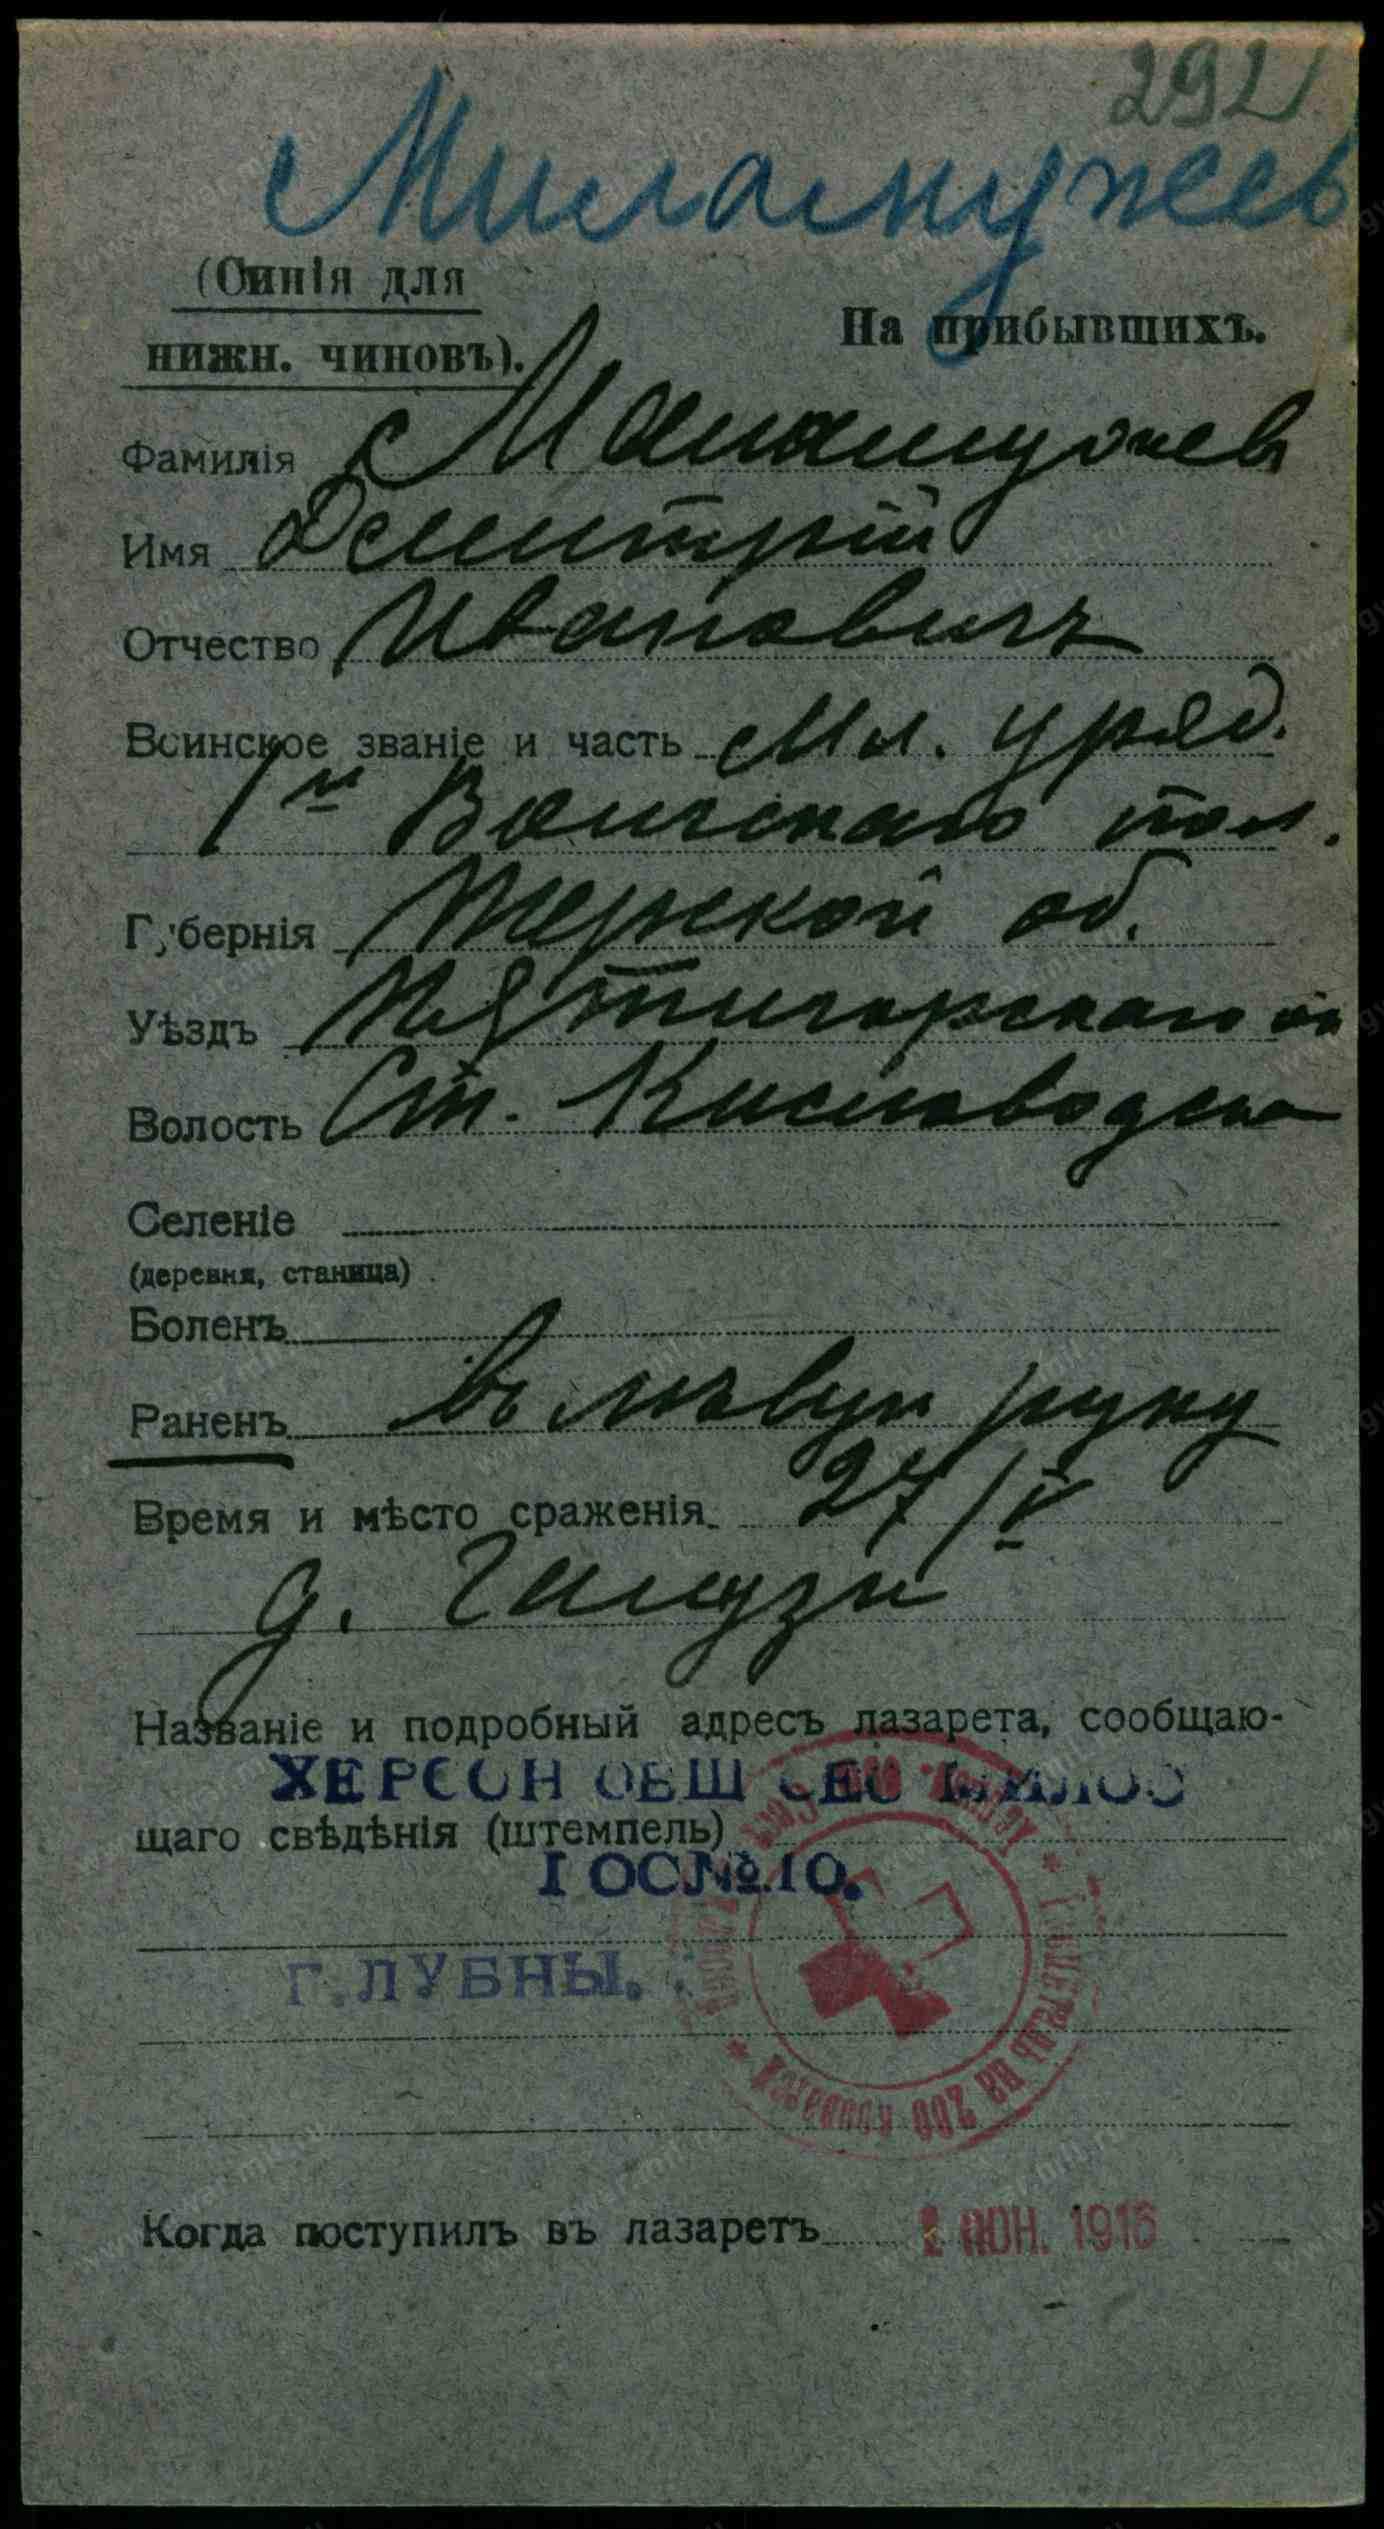 292
(Синія для
нижн. чиновъ).
На прибывшихъ.
Фамилія
Имя Дмитрій
Отчество Ивановичъ
Воинское званіе и часть Мл. уряд.
1й Волгскаго пол.
Губернія Терской об.
Уѣздъ Пятигорскаго от
Волость Ст. Кисловодска
Селеніе
(деревня, станица)
Боленъ
Раненъ въ лѣвую руку
Время и мѣсто сраженія. 27/V
д.
Названіе и подробный адресъ лазарета, сообщаю-
ХЕРСОН ОБЩ СЕС МИЛОС
щаго свѣдѣнія (штемпель)
I ОС №.10.
Г. ЛУБНЫ.
Когда поступилъ въ лазаретъ ІЮН. 1916